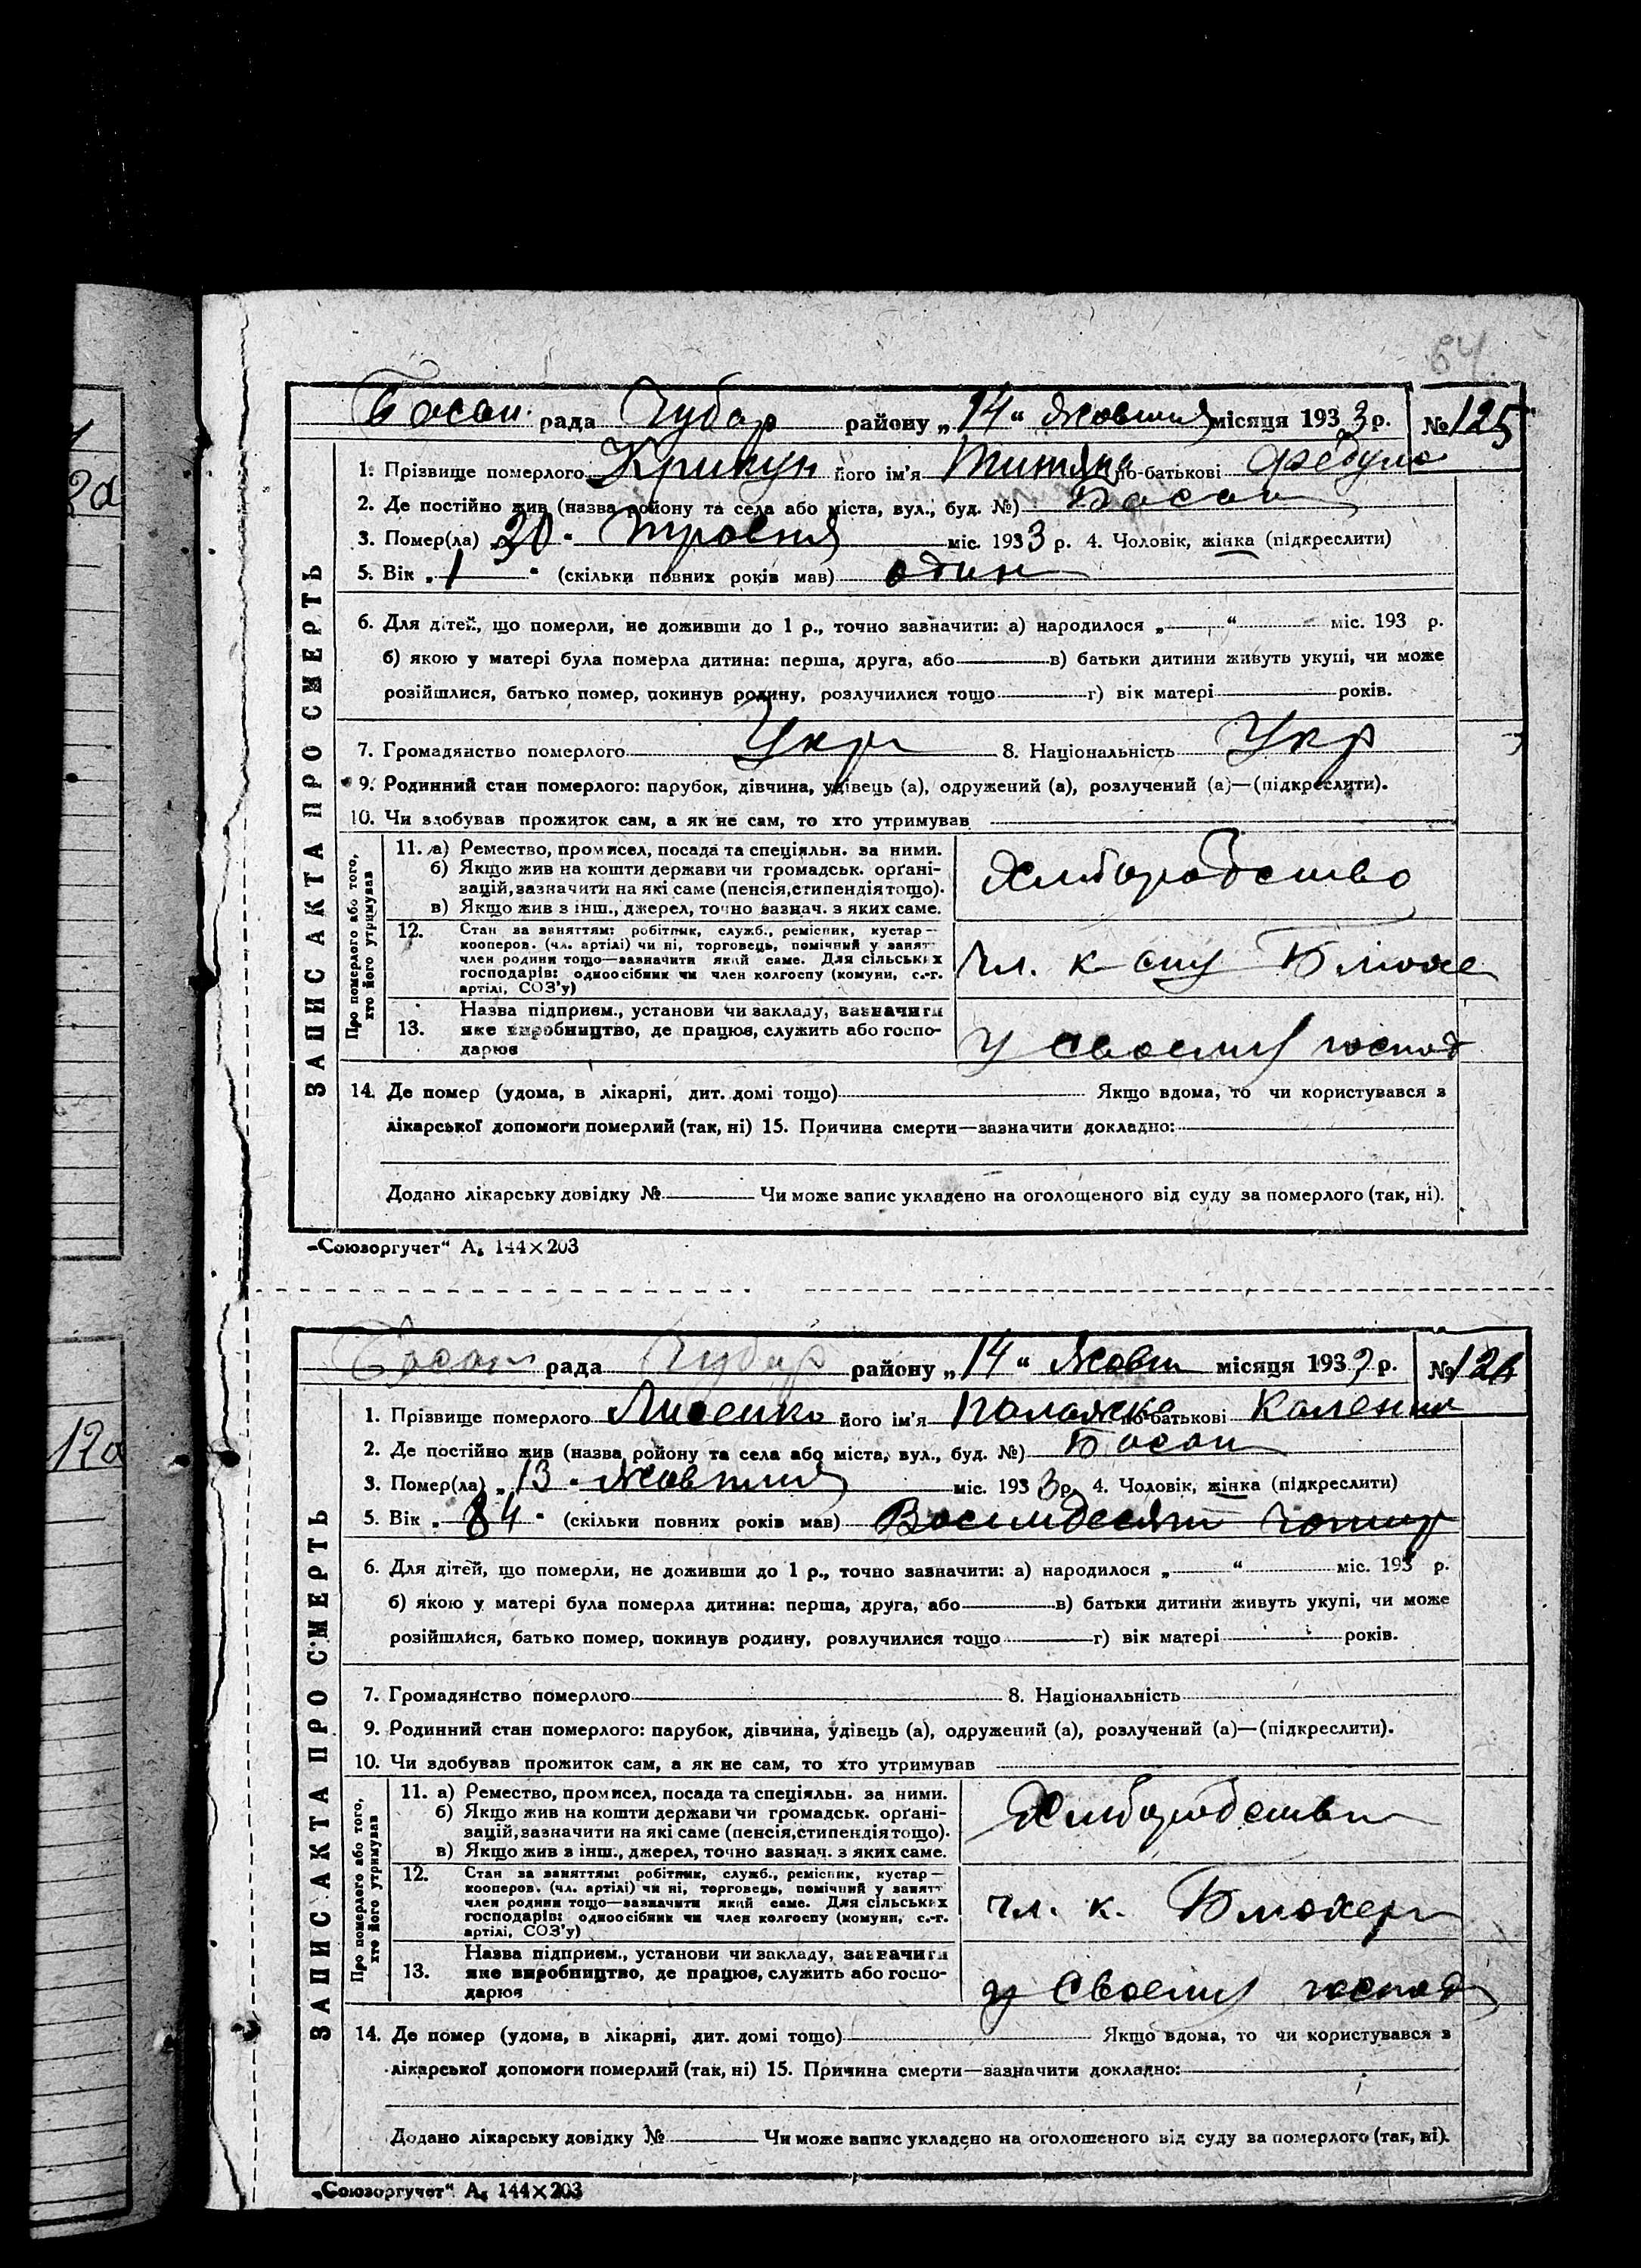 64
Басан рада Чубар району „14“ Жовтня місяця 1933 р. № 125
ЗАПИС АКТА ПРО СМЕРТЬ
1. Прізвище померлого Крикун його ім'я Титяна по-батькові
2. Де постійно жив (назва ройону та села або міста, вул., буд. №) Басан
3. Помер(ла) „20“ травня міс. 1933 р. 4. Чоловік, жінка (підкреслити)
5. Вік „1“ (скільки повних років мав) один
6. Для дітей, що померли, не доживши до 1 р., точно зазначити: а) народилося „ “ міс. 193 р.
б) якою у матері була померла дитина: перша, друга, або в) батьки дитини живуть укупі, чи може
розійшлися, батько помер, покинув родину, розлучилися тощо г) вік матері років.
7. Громадянство померлого Укр 8. Національність Укр
9. Родинний стан померлого: парубок, дівчина, удівець (а), одружений (а), розлучений (а)—(підкреслити).
10. Чи здобував прожиток сам, а як не сам, то хто утримував
Про померлого або того, хто його утримував
11. а) Ремество, промисел, посада та спеціяльн. за ними.
б) Якщо жив на кошти держави чи громадськ. орґані-
зацій, зазначити на які саме (пенсія, стипендія тощо).
в) Якщо жив з інш., джерел, точно зазнач. з яких саме.
Хліборобство
12. Стан за заняттям: робітник, служб., ремісник, кустар—
кооперов. (чл. артілі) чи ні, торговець, помічний у занят
член родини тощо—зазначити який саме. Для сільських
господарів: одноосібник чи член колгоспу (комуни, с.-г.
артілі, СОЗ'у)
Чл. к-спу Блюхе
13. Назва підприєм., установи чи закладу, зазначити
яке виробництво, де працює, служить або госпо-
дарює
у своєму господ
14. Де помер (удома, в лікарні, дит. домі тощо) Якщо вдома, то чи користувався з
лікарської допомоги померлий (так, ні) 15. Причина смерти—зазначити докладно:
Додано лікарську довідку № Чи може запис укладено на оголощеного від суду за померлого (так, ні).
„Союзоргучет“ А₅ 144×203
Басан рада Чубар району „14“ Жовтн місяця 193 р. № 126
ЗАПИС АКТА ПРО СМЕРТЬ
1. Прізвище померлого Лисенко його ім'я Палажка по-батькові Каленик
2. Де постійно жив (назва ройону та села або міста, вул., буд. №) Басан
3. Помер(ла) „13“ Жовтня міс. 1933 р. 4. Чоловік, жінка (підкреслити)
5. Вік „84“ (скільки повних років мав) Восимдесят чотир
6. Для дітей, що померли, не доживши до 1 р., точно зазначити: а) народилося „ “ міс. 193 р.
б) якою у матері була померла дитина: перша, друга, або в) батьки дитини живуть укупі, чи може
розійшлися, батько помер, покинув родину, розлучилися тощо г) вік матері років.
7. Громадянство померлого 8. Національність
9. Родинний стан померлого: парубок, дівчина, удівець (а), одружений (а), розлучений (а)—(підкреслити).
10. Чи здобував прожиток сам, а як не сам, то хто утримував
Про померлого або того, хто його утримував
11. а) Ремество, промисел, посада та спеціяльн. за ними.
б) Якщо жив на кошти держави чи громадськ. орґані-
зацій, зазначити на які саме (пенсія, стипендія тощо).
в) Якщо жив з інш., джерел, точно зазнач. з яких саме.
Хліборобство
12. Стан за заняттям: робітник, служб., ремісник, кустар—
кооперов. (чл. артілі) чи ні, торговець, помічний у занят
член родини тощо—зазначити який саме. Для сільських
господарів: одноосібник чи член колгоспу (комуни, с.-г.
артілі, СОЗ'у)
чл. к. Блюхера
13. Назва підприєм., установи чи закладу, зазначити
яке виробництво, де працює, служить або госпо-
дарює
у своєму господ
14. Де помер (удома, в лікарні, дит. домі тощо) Якщо вдома, то чи користувався з
лікарської допомоги померлий (так, ні) 15. Причина смерти—зазначити докладно:
Додано лікарську довідку № Чи може запис укладено на оголошеного від суду за померлого (так, ні).
„Союзоргучет“ А₅ 144×203